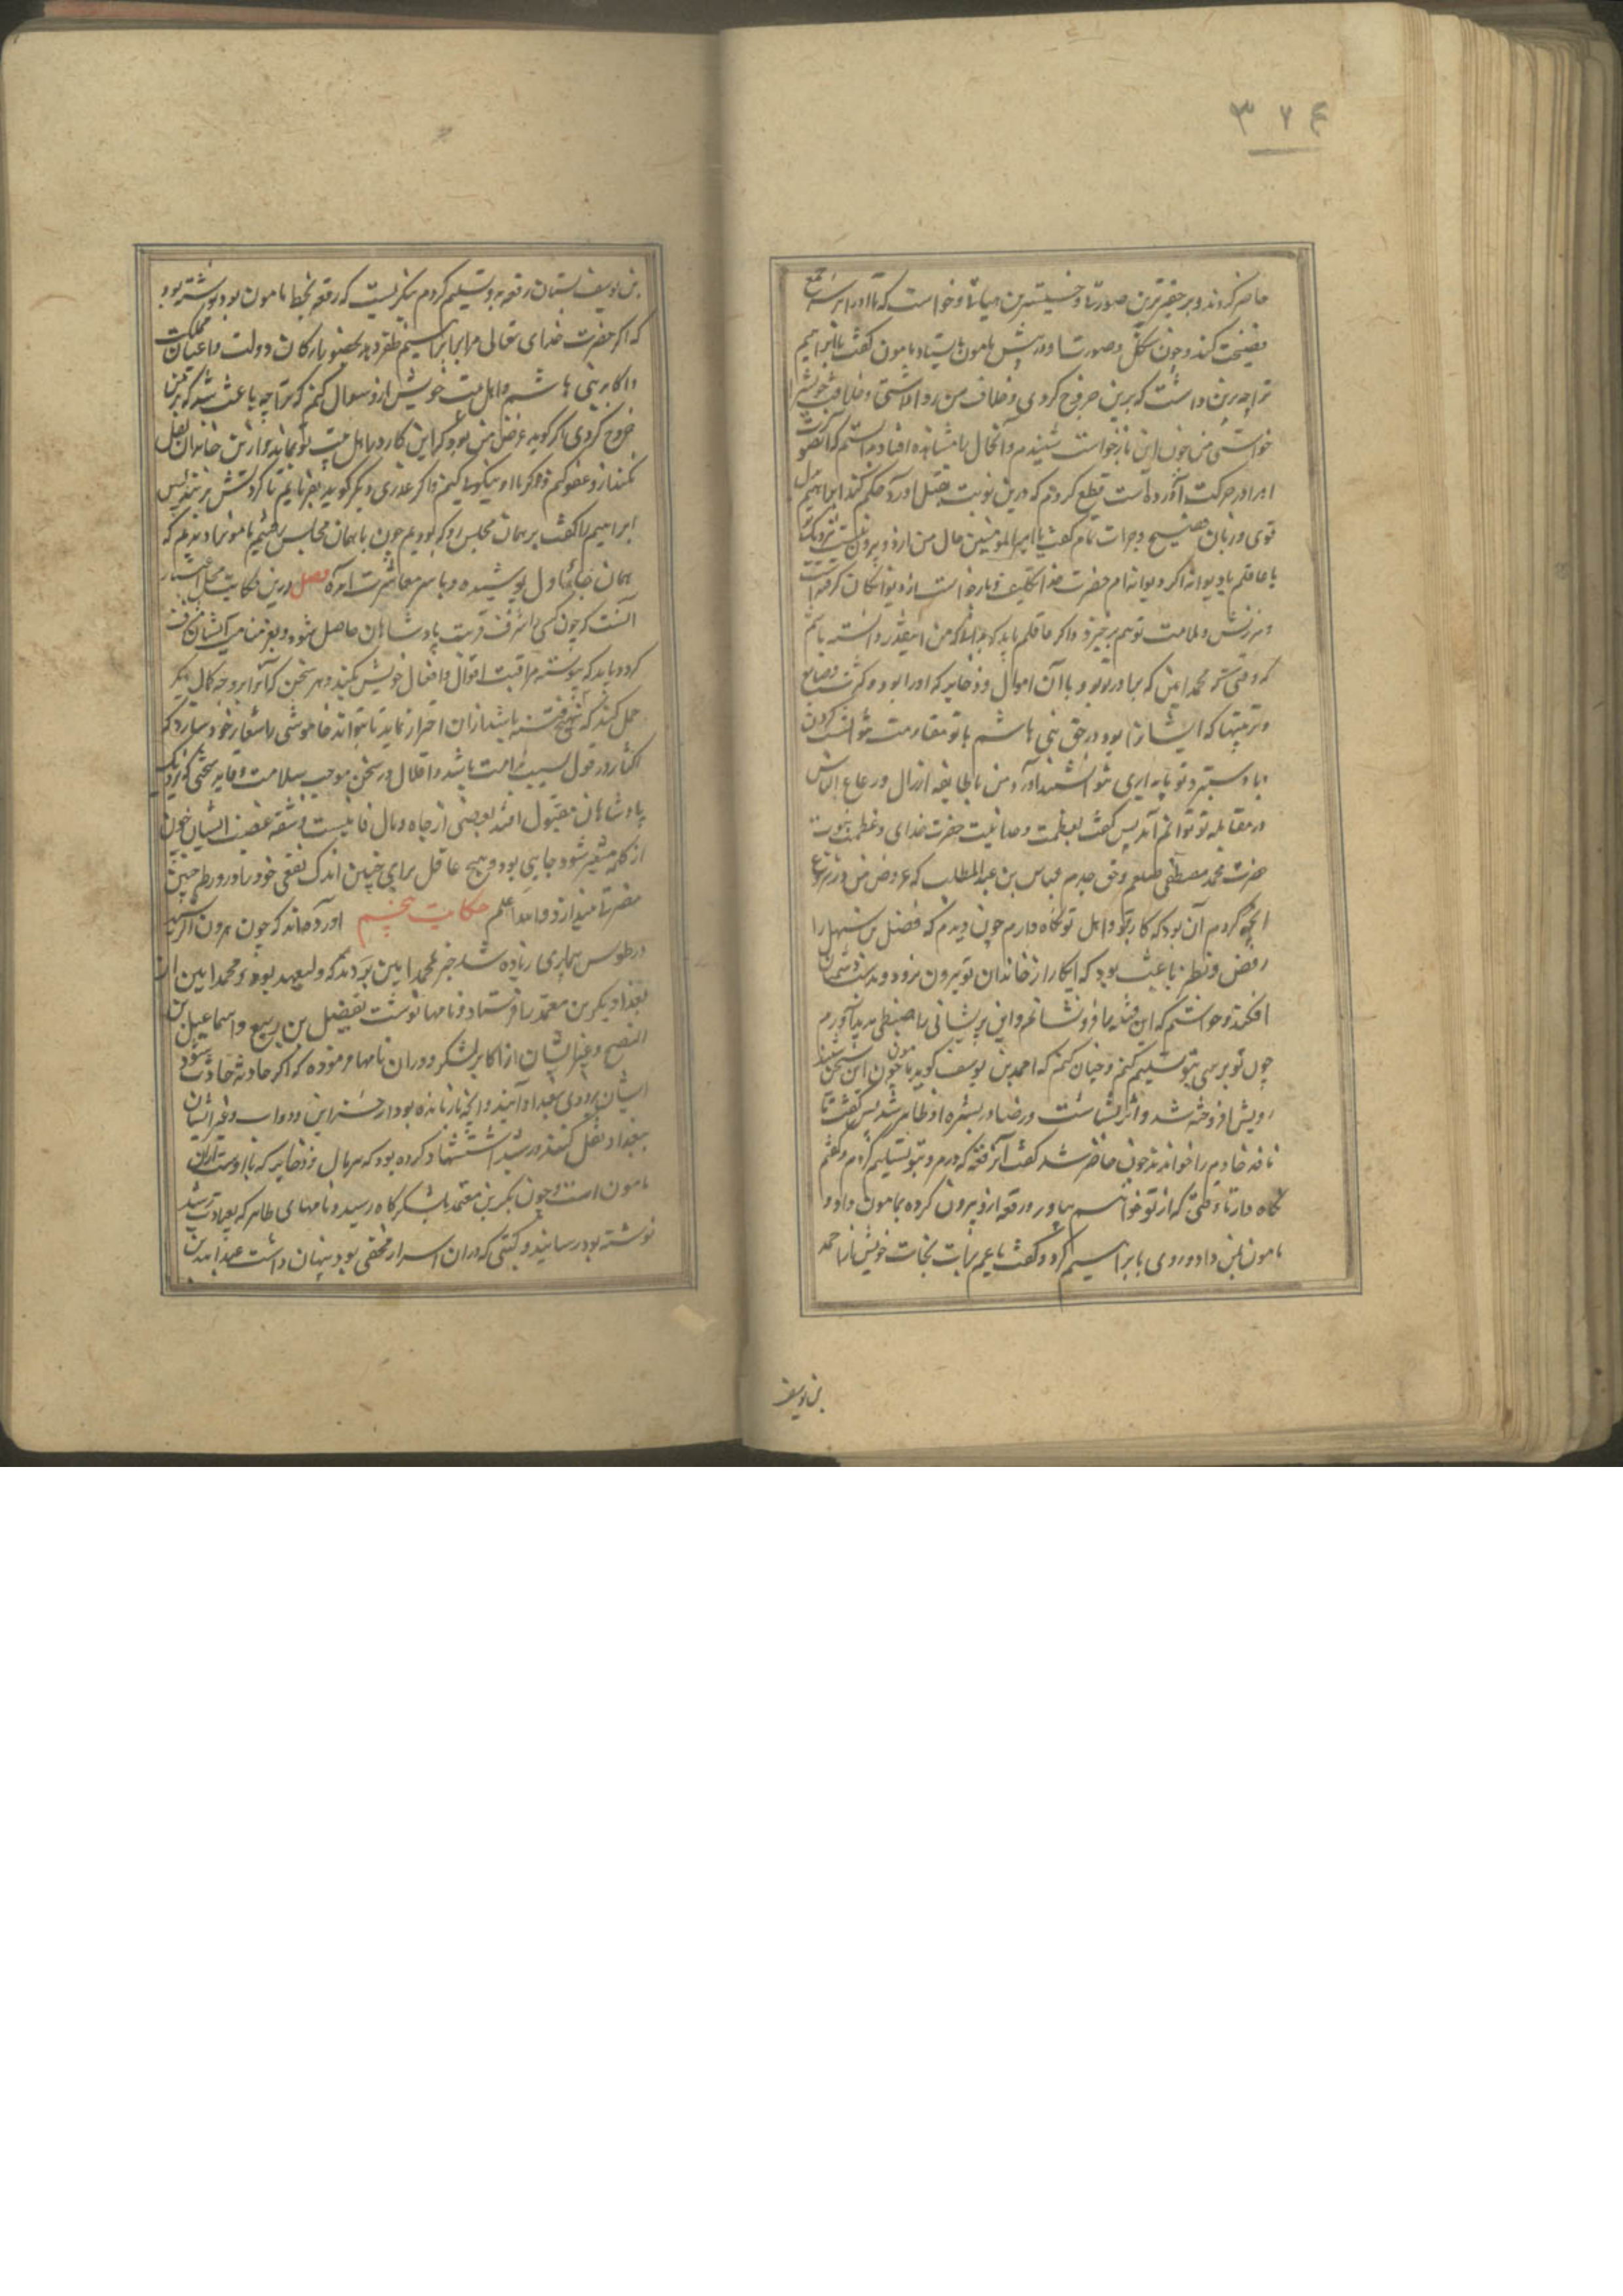 ۳۲۴
حاضر کردند و بر حقیرترین صورتها و خسیسترین هیاتها و خواست که تا او را بر سر جمع
فضیحت کند و چون بدان شکل و صورت پیش مامون بایستاد مامون گفت یا ابراهیم
ترا چه برین داشت که برین خروج کردی و خلاف من روا داشتی و خلافت خویش را
خواستی من چون این بازخواست شنیدم و آنحال مشاهده افتاد دانستم که آنصورت
او را در حرکت آورده است قطع کردم که درین نوبت بقتل او حکم کند ابراهیم بدل
قوی و زبان فصیح و جرات تمام گفت یا امیرالمومنین حال من از دو بیرون نیست نزدیک تو
یا عاقلم یا دیوانه اگر دیوانه ام حضرت خدا تکلیف و بازخواست از دیوانگان برگرفته است
و سرزنش و ملامت توهم برخیزد و اگر عاقلم باید که بدانکه من اینقدر دانسته باشم
که وقتی که محمد امین که برادر تو بود با آن اموال و ذخایر که او را بود و کثرت صنایع
و تربیتها که ایشانرا بود در حق بنی هاشم با تو مقاومت نتوانست کردن
و با دستبرد تو پایداری نتوانستند آورد من با طایفه ارذال و رعاع الناس
در مقابله تو توانم آمد پس گفت بعظمت و صانیت حضرت خدای و عظمت نبوت
حضرت محمد مصطفی صلعم و حق جدم عباس بن عبدالمطلب که غرض من در شروع
آنچه کردم آن بود که کار بر تو و اهل تو نگاه دارم چون دیدم که فضل بن سهل را
رفض و نظر باعث بود که اینکار از خاندان تو بیرون برود و بدست دشمنان
افکند و خواستم که این فتنه را فرو نشانم و این پریشانی را ضبطی پدید آورم
چون تو برسی بتو تسلیم کنم و چنان کنم که احمد بن یوسف گوید مامون چون این سخن شنید
رویش افروخته شد و اثر بشاشت و رضا در بشره او ظاهر شد پس گفت تا
نافه خادم را خواندند چون حاضر شد گفت آن رقعه که دی روز بتو تسلیم کردم و گفتم
نگاه دار تا وقتی که از تو خواهم بیاور و رقعه ازو بیرون کرده بمامون داد و
مامون بمن داد و روی بابراهیم کرد و گفت یا عم برات نجات خویش از احمد
بن یوسف
بن یوسف بستان رقعه بدو تسلیم کردم بنگریست که رقعه بخط مامون بود نوشته بود
که اگر حضرت خدای تعالی مرا بر ابراهیم ظفر دهد بحضور ارکان دولت و اعیان مملکت
و اکابر بنی هاشم و اهل بیت خویش ازو سوال کنم که ترا چه باعث شد که بر من
خروج کردی اگر گوید غرض من بود که این کار در اهل بیت تو بماند و ازین خاندان نقل
نکند ازو عفو کنم و با او نیکوییها کنم و اگر عذری دیگر گوید بفرمایم تا گردنش بزنند پس
ابراهیم را گفت بر همان مجلس رو که بودیم چون بهمان مجلس رفتیم مامون را دیدیم که
همان جامهای اول پوشیده و با سر معاشرت آمده فصل درین حکایت محل اعتبار
آنست که چون کسی را شرف قربت پادشاهان حاصل شود و بعز منادمت ایشان مشرف
گردد باید که پیوسته مراقبت اقوال و افعال خویش بکند و هر سخن که آنرا بر وجه کمال دیگر
حمل کنند که مهیج فتنه باشد از ان احتراز نماید تا بتواند خاموشی را شعار خود سازد که
اکثار در قول سبب ندامت باشد و اقلال در سخن موجب سلامت و فایده سخنی که نزدیک
پادشاهان مقبول افتد بعضی از جاه و مال فانیست و شقه غضب ایشان چون
از کلمه متغیر شود جانی بود و هیچ عاقل برای چنین اندک نفعی خود را در ورطه چنین
مضرتها نیندازد والله اعلم حکایت پنجم آورده اند که چون هرون الرشید
در طوس بیماری زیاده شد خبر بمحمد امین بردند که ولیعهد بود و محمد امین از
بغداد بکر بن معتمد را فرستاد و نامها نوشت بفضل بن ربیع و اسماعیل بن
النصیح و غیر ایشان از اکابر لشکر و در ان نامها فرموده که اگر حادثه حادث شود
ایشان بزودی ببغداد آیند و آنچه باز مانده بود از خزاین و دواب و غیر ایشان
ببغداد نقل کنند و رشید استشهاد کرده بود که هر مال و ذخایر که با اوست از آن
مامون است و چون بکر بن معتمد بلشکرگاه رسید و نامهای ظاهر که بعیادت رشید
نوشته بود رسانید و کتبی که در ان اسرار مخفی بود پنهان داشت عبدالله بن